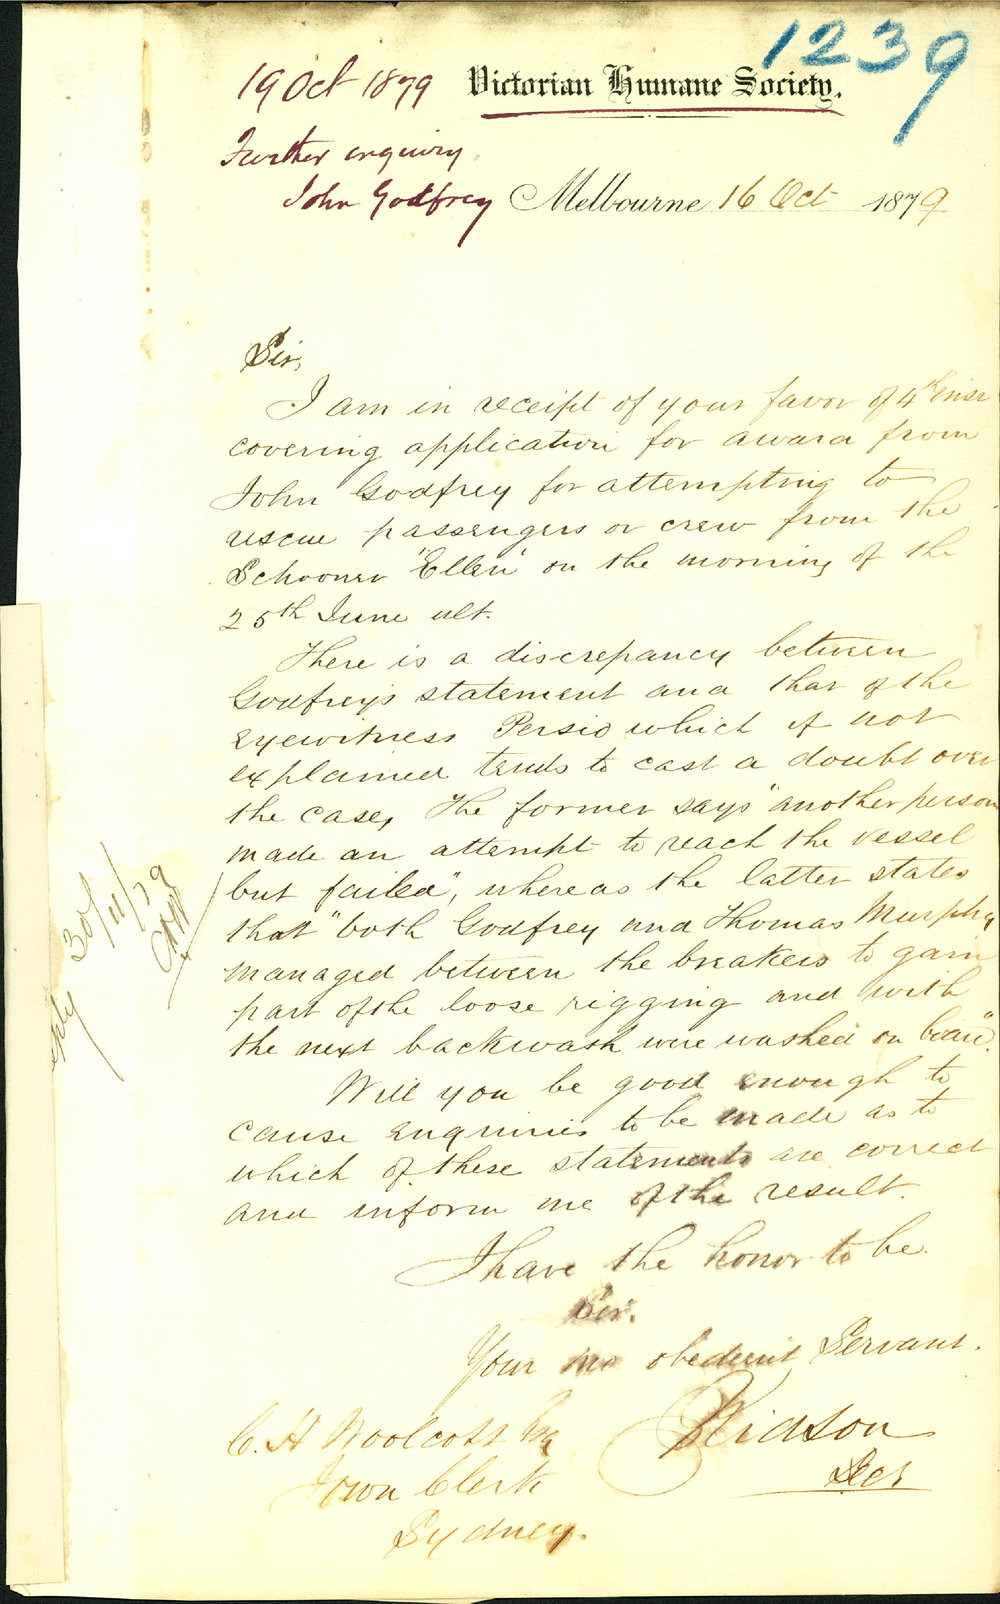 1239
19 Oct 1879 Victorian Humane Society.
Further enquiry
John Godfrey Melbourne 16 Oct 1879
Sir,
I am in receipt of your favor of 4th inst
covering application for award from
John Godfrey for attempting to
rescue passengers or crew from the
Schooner "Ellen" on the morning of the
25th June ult.
There is a discrepancy between
Godfrey's statement and that of the
eyewitness Persio which if not
explained tends to cast a doubt over
the case, The former says "another person
made an attempt to reach the vessel
but failed", whereas the latter states
that "both Godfrey and Thomas Murphy
managed between the breakers to gain
part of the loose rigging and with
the next backwash were washed on board".
Will you be good enough to
cause enquiries to be made as to
which of these statements are correct
and inform me of the result.
I have the honor to be.
Sir.
Your mo obedient Servant.
C. H Woolcott Esq
Town Clerk
Sydney.
Secy
30/11/79